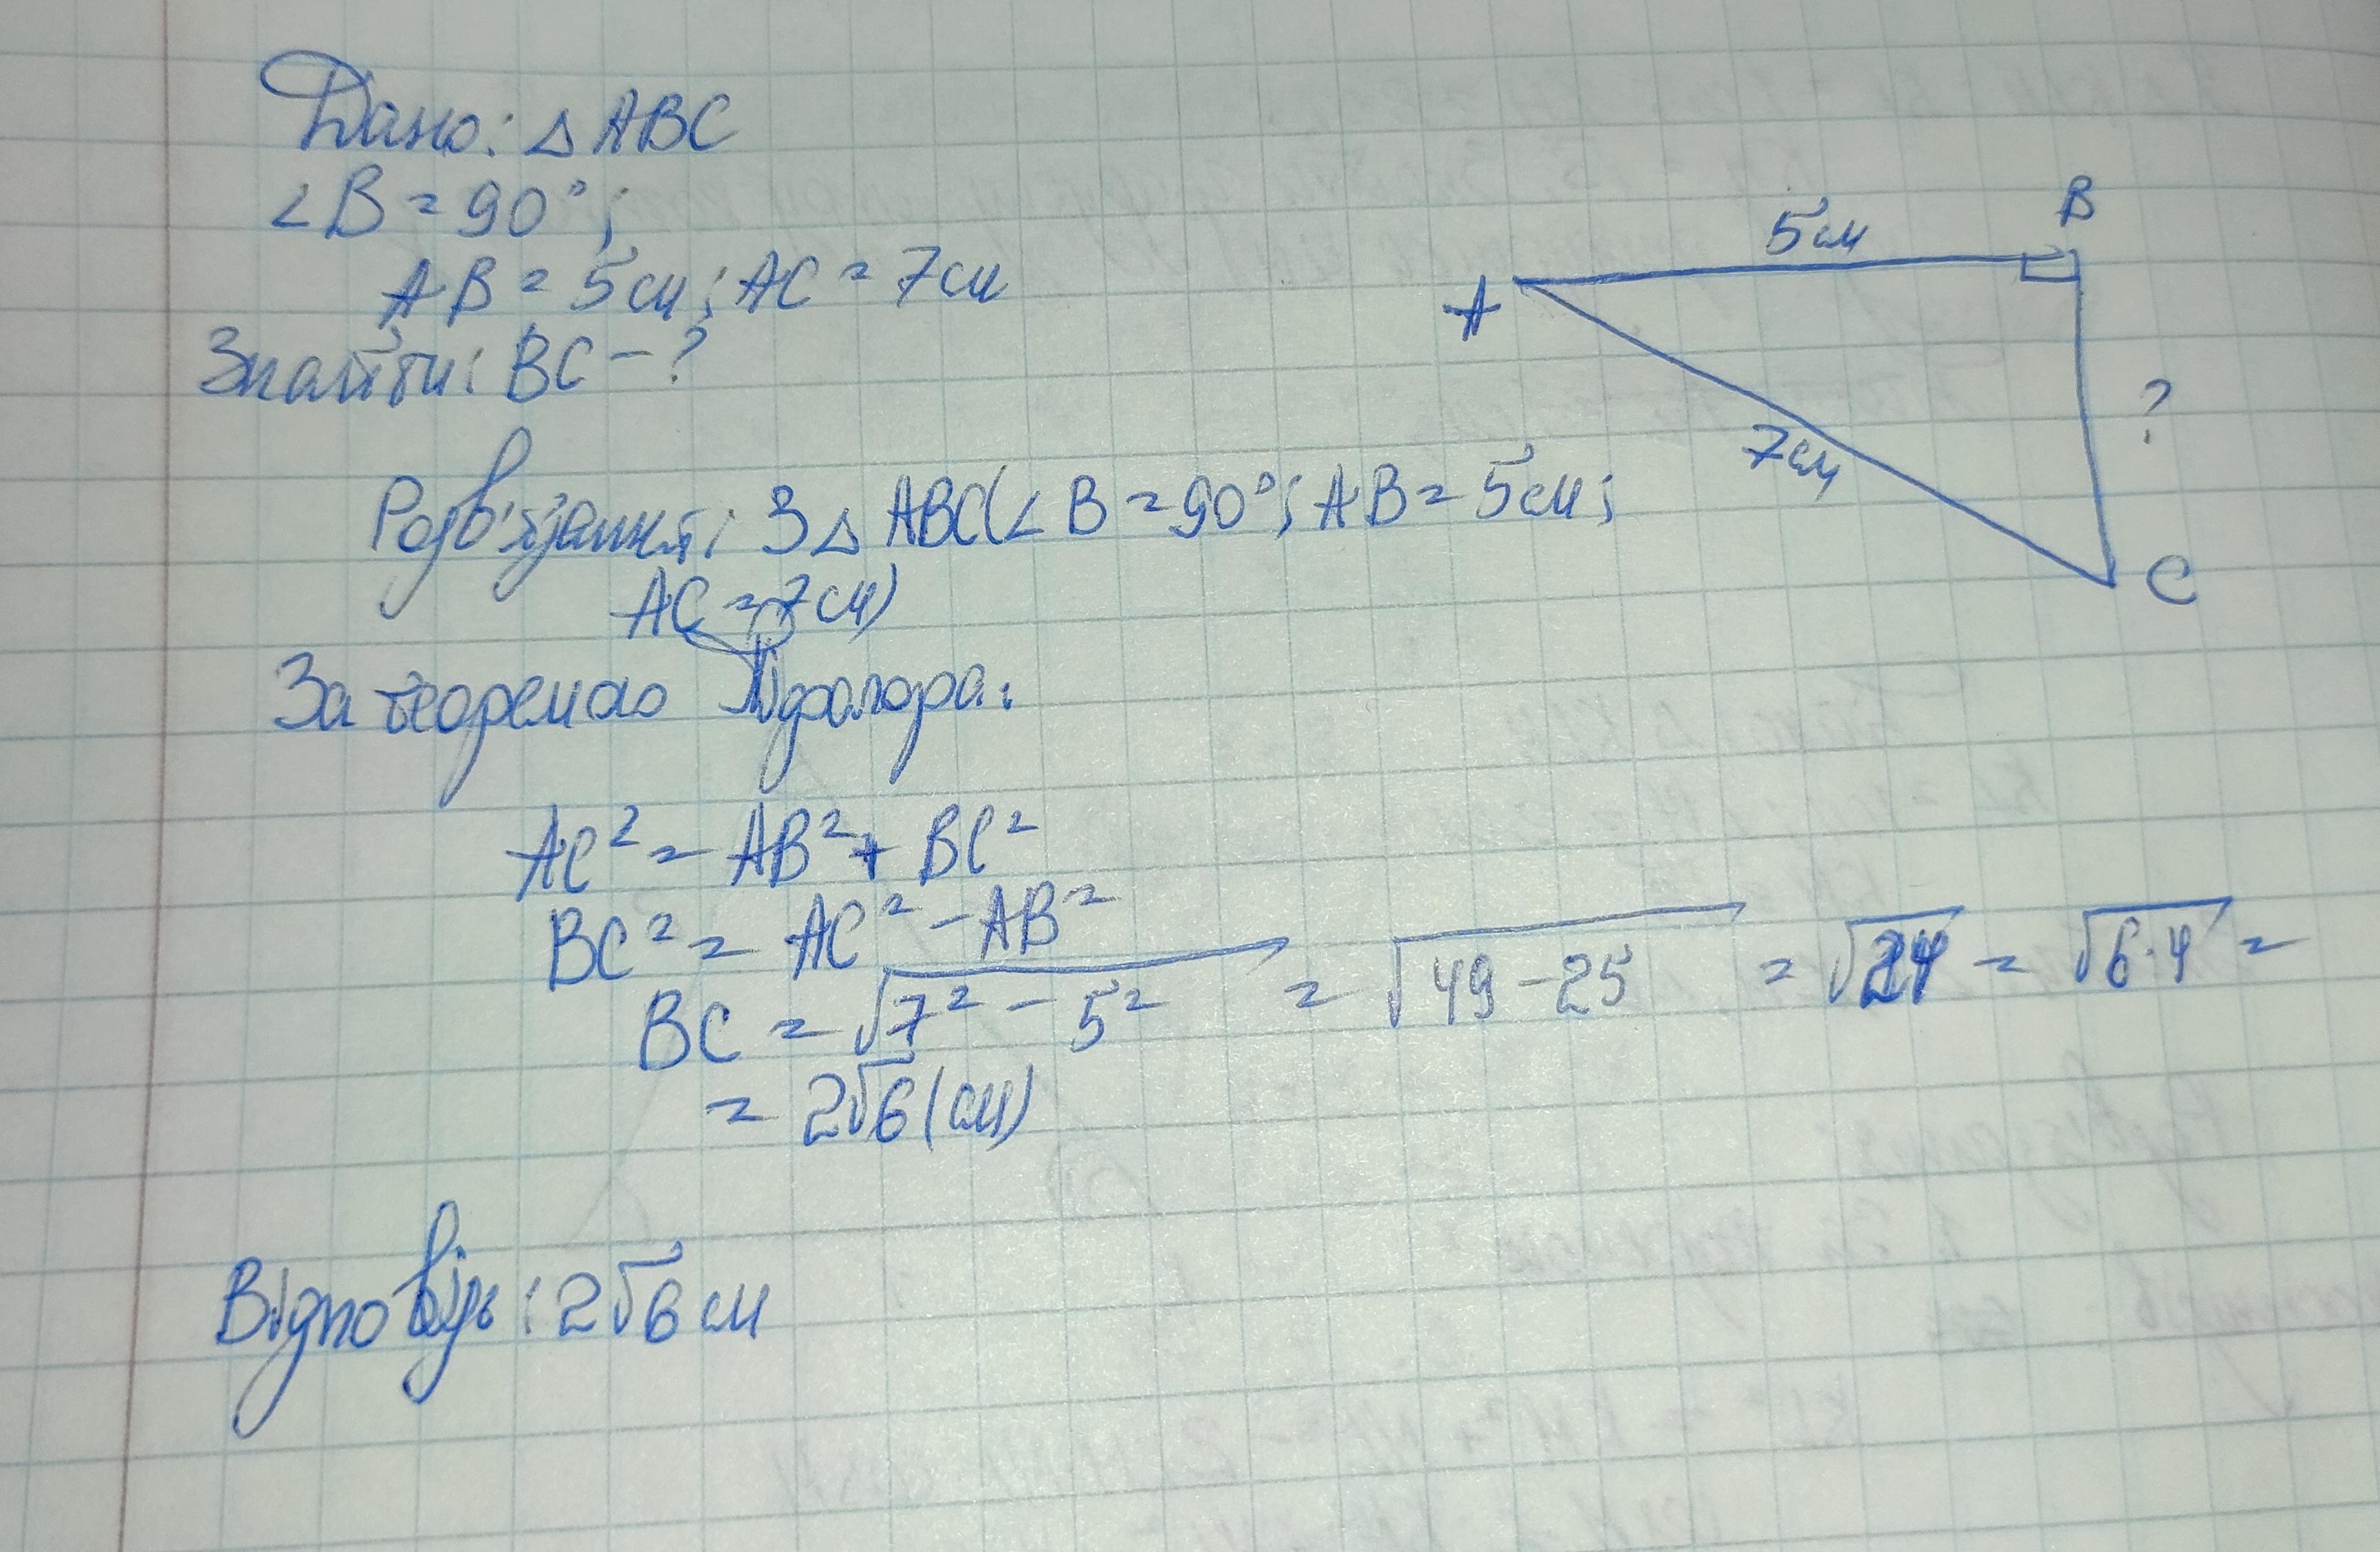 Дано: △ ABC
∠B = 90°;
AB = 5 см; AC = 7 см
Знайти: BC - ?
5 см
B
A
7 см
?
C
Розв'язання: З △ ABC (∠B = 90°; AB = 5 см;
AC = 7 см)
За теоремою Піфагора:
AC² = AB² + BC²
BC² = AC² - AB²
BC = √7² - 5² = √49 - 25 = √24 = √6·4 =
= 2√6 (см)
Відповідь: 2√6 см